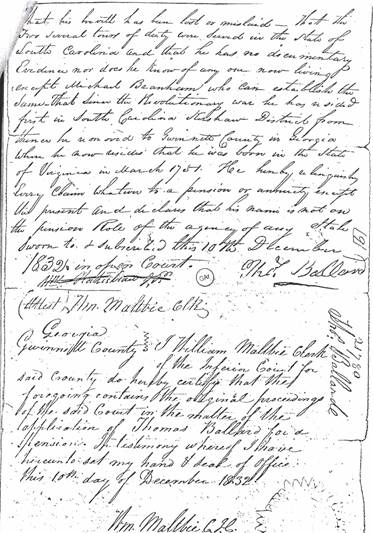 that his [...] has been lost or mislaid — that the
two several tours of duty were served in the State of
South Carolina and that he has no documentary
Evidence nor does he know of any one now living
except Michael Beanham who can establish the
same that since the Revolutionary war he has resided
first in South Carolina Kershaw District from
thence he removed to Gwinnett County in Georgia
where he now resides that he was born in the State
of Virginia in March 1751. He hereby relinquishes
Every Claim whatever to a pension or annuity except
the present and declares that his name is not on
the pension Role of the agency of any State
Sworn to & subscribed this 10th December
1832 in open Court.
Thos Ballard
Attest Wm. Maltbie Clk
Georgia
Gwinnett County I William Maltbie Clerk
of the Inferior Court for
said County do hereby certify that the
foregoing contains the original proceedings
of the said Court in the matter of the
application of Thomas Ballard for a
pension. In testimony whereof I have
hereunto set my hand & seal of office
this 10th day of December 1832
Wm. Maltbie
GA
Thos Ballard